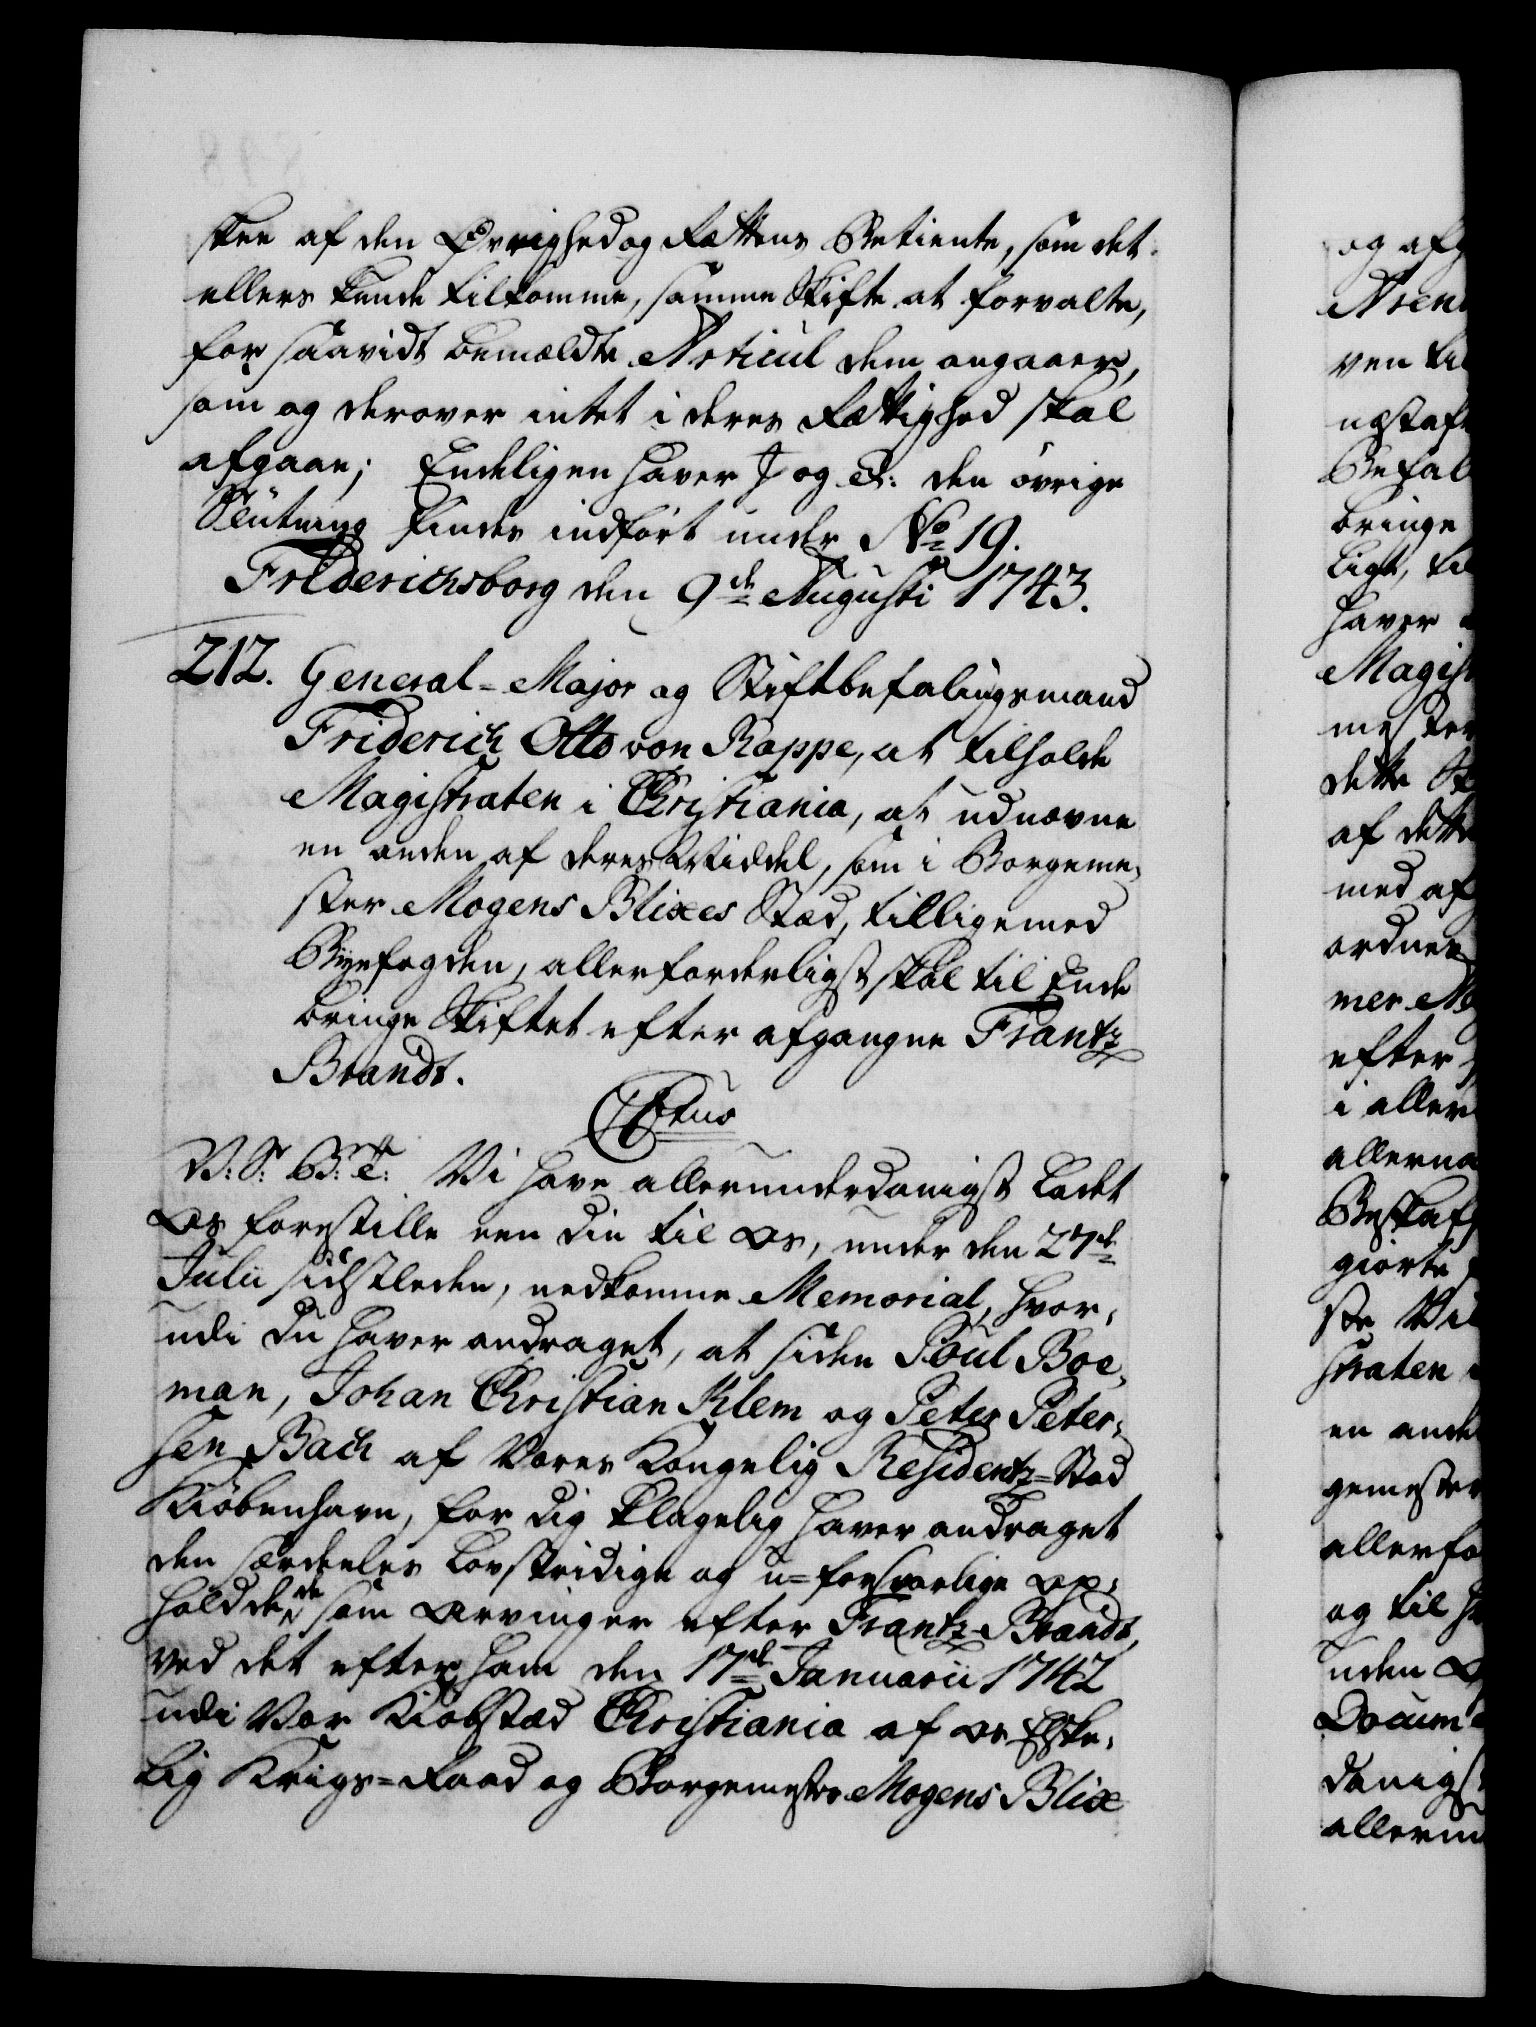 skee af den Øvrighed og Rettens Betiente, som det
ellers kunde tilkomme, samme Skifte at forvalte,
for saavidt bemældte Articul dem angaaer,
som og derover intet i deres Rettighed skal
afgaae; Endeligen haver I og &: den övrige
Slutning findes indfört under No 19.
Friderichsborg den 9de Augusti 1743.
212. General-Major og Stiftbefalingsmand
Friderich Otto von Rappe, at tilholde
Magistraten i Christiania, at udnævne
en anden af deres Middel, som i Borgeme-
ster Mogens Blixes Stæd, tilligemed
Byefogden, allerforderligst skal til Ende
bringe Skiftet efter afgangne Frantz
Brandt.
C6tus
V: S: G: T: Vi have allerunderdanigst ladet
Os forestille een din til Os, under den 27de
Julii sidstleden, nedkomne Memorial, hvor-
udi du haver andraget, at siden Poul Boe-
man, Johan Christian Klem og Peter Peter-
sen Bach af Vores Kongelig Residentz-Stad
Kiöbenhavn, for dig klagelig haver andraget
den særdeeles Lovstridige og u-forsvarlige Op-
hold de, som Arvinger efter Frantz Brandt,
ved det efter ham den 17de Januarii 1742
udi Vor Kiöbstæd Christiania af Os Elske-
lig Krigs-Raad og Borgemester Mogens Blix
og afg
Aren
ven til
næstaft
Befal
bringe
ligt, til
haver
Magist
mester
dette St
af dette
med af
ordner
mer Mo
efter
i aller
allerna
Beskaf
giorte
ste Vil
straten
en ande
gemester
allerfo
og til h
uden O
Docum
danigst
allerun